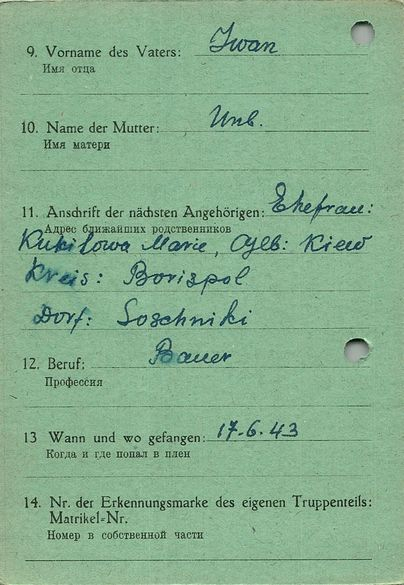 9. Vorname des Vaters: Iwan
Имя отца
10. Name der Mutter: Unb.
Имя матери
11. Anschrift der nächsten Angehörigen: Ehefrau:
Адрес ближайших родственников
Kukilowa Marie, Glb: Kiew
Kreis: Borispol
Dorf: Soschniki
12. Beruf: Bauer
Профессия
13 Wann und wo gefangen: 17.6.43
Когда и где попал в плен
14. Nr. der Erkennungsmarke des eigenen Truppenteils:
Matrikel-Nr.
Номер в собственной части